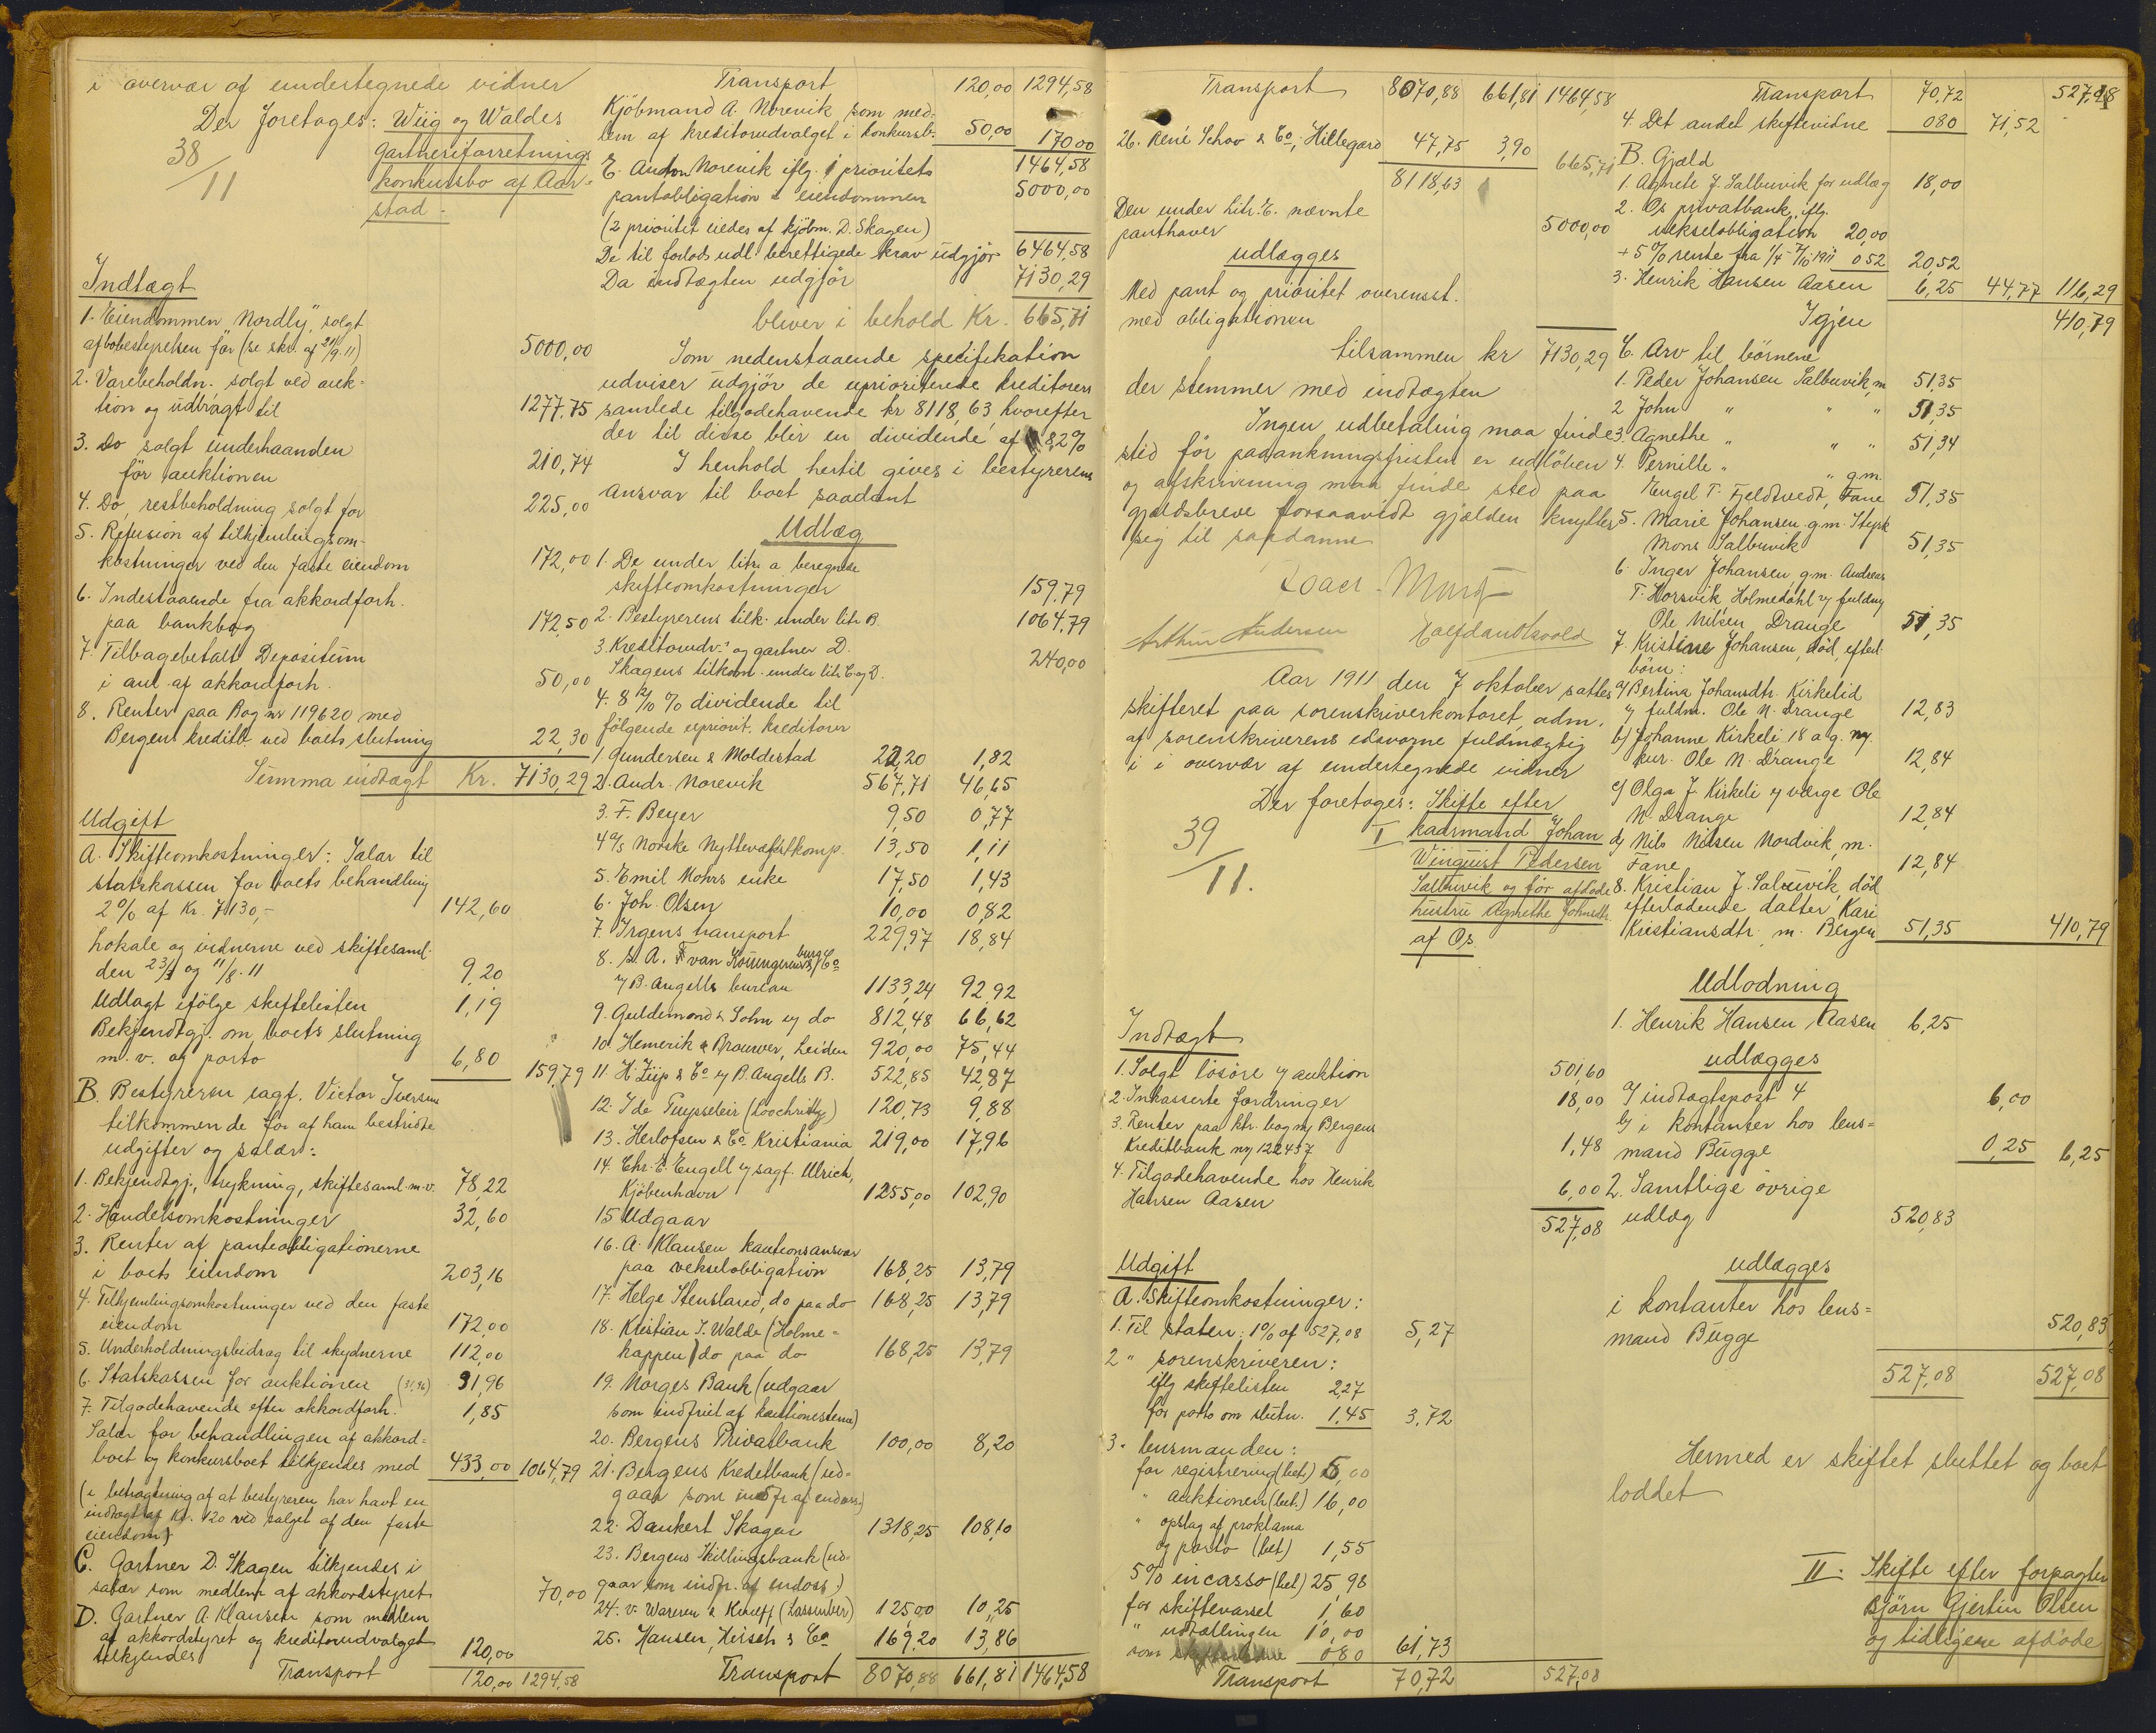 i overvær af undertegnede vidner
Der foretages: Wiig og Waldes
38/11
gartneriforretnings
konkursbo af Aar-
stad.
Indtægt
1. Eiendommen "Nordly", solgt
af bobestyrelsen for (se skr. af 21/9.11) 5000,00
2. Varebeholdn. solgt ved auk-
tion og udbragt til 1277,75
3. Do solgt underhaanden
før auktionen 210,74
4. Do, restbeholdning solgt for 225,00
5. Refusion af tilkjendingsom-
kostninger ved den faste eiendom 172,00
6. Indestaaende fra akkordforh.
paa bankbog 172,50
7. Tilbagebetalt Depositum
i anl. af akkordforh. 50,00
8. Renter paa Bog nr 119620 med
Bergens kreditb. ved boets slutning 22,30
Summa indtægt Kr. 7130,29
Udgift
A. Skifteomkostninger: Salær til
statskassen for boets behandling
2% af Kr. 7130,- 142,60
Lokale og vidnerne ved skiftesaml.
den 23/3 og 11/8.11 9,20
Udlagt ifølge skiftelisten 1,19
Bekjendtgj. om boets slutning
m.v. og porto 6,80 159,79
B. Bestyreren sagf. Victor Iversen
tilkommende for af ham bestridte
udgifter og salær:
1. Bekjendtgj., trykning, skiftesaml. m.v. 78,22
2. Handelsomkostninger 32,60
3. Renter af panteobligationerne
i boets eiendom 203,16
4. Tilkjendingsomkostninger ved den faste
eiendom 172,00
5. Underholdningsbidrag til skydnerne 112,00
6. Statskassen for auktionen (31,96) 31,96
7. Tilgodehavende efter akkordforh. 1,85
Salær for behandlingen af akkord-
boet og konkursboet tilkjendes med 433,00 1064,79
(i betragtning af at bestyreren har havt en
indtægt af Kr. 120 ved salget af den faste
eiendom)
C. Gartner D. Skagen tilkjendes i
salær som medlem af akkordstyret 70,00
D. Gartner A. Klausen som medlem
af akkordstyret og kreditorudvalget
tilkjendes 120,00
Transport 120,00 1294,58
Transport 120,00 1294,58
Kjøbmand A. Norevik som med-
lem af kreditorudvalget i konkursb. 50,00 170,00
1464,58
E. Anton Norevik iflg. 1 prioritets
pantobligation i eiendommen 5000,00
(2 prioritet eiedes af kjøbm. D. Skagen)
De til forlods udl. berettigede krav udgjør 6464,58
Da indtægten udgjør 7130,29
bliver i behold Kr. 665,71
Som nedenstaaende specifikation
udviser udgjør de uprioriterede kreditorers
samlede tilgodehavende kr 8118,63 hvorefter
der til disse blir en dividende af 8,2%
I henhold hertil gives i bestyrerens
ansvar til boet saadant
Udlæg
1. De under litr. a beregnede
skifteomkostninger 159.79
2. Bestyrerens tilk. under litr B. 1064,79
3. Kreditorudv. og gartner D.
Skagens tilkom. under litr C og D. 240,00
4. 8 2/10 % dividende til
følgende upriorit. kreditorer
1. Gundersen & Moldestad 22,20 1,82
2. Andr. Norevik 567,71 46,65
3. F. Beyer 9,50 0,77
4 A/S Norske Nyttevækstkomp. 13,50 1,11
5. Emil Mohrs enke 17,50 1,43
6. Joh. Olsen 10,00 0,82
7. Irgens transport 229,97 18,84
8. S. A. F van & Co
v/ B. Angells bureau 1133,24 92,92
9. Guldemond & Sohn v/ do 812,48 66,62
10. Hemerik & Brouwer, Leiden 920,00 75,44
11. H. Zijp & Co v/ B. Angells B. 522,85 42,87
12. Ide Puysseleir (Loochristy) 120,73 9,88
13. Herlofsen & Co Kristiania 219,00 17,96
14. Chr. E. Engell v/ sagf. Ulrich,
Kjøbenhavn 1255,00 102,90
15 Udgaar
16. A. Klausen kautionsansvar
paa vekselobligation 168,25 13,79
17. Helge Stensland, do paa do 168,25 13,79
18. Kristian I. Walde (Holme-
happen) do paa do 168,25 13,79
19. Norges Bank (udgaar
som indfriet af kautionisterne)
20. Bergens Privatbank 100,00 8,20
21. Bergens Kreditbank (ud-
gaar som indfr. af endoss.)
22. Dankert Skagen 1318,25 108,10
23. Bergens Skillingsbank (ud-
gaar som indfr. af endoss.)
24. v. Waveren & Kruijff (Sassenheim) 125,00 10,25
25. Hansen, Hirsch & Co 169,20 13,86
Transport 8070,88 661,81 1464,58
Transport 8070,88 661,81 1464,58
26. René Schov & Co, Hillegard 47,75 3,90 665,71
8118,63
Den under Litr. E. nævnte
panthaver 5000,00
udlægges
Med pant og prioritet overensst.
med obligationen
tilsammen kr 7130,29
der stemmer med indtægten
Ingen udbetaling maa finde
sted før paaankningsfristen er udløben
og afskrivning maa finde sted paa
gjældsbreve forsaavidt gjælden knytter
sig til saadanne
Arthur Andersen
Aar 1911 den 7 oktober sattes
skifteret paa sorenskriverkontoret, adm.
af sorenskriverens edsvorne fuldmægtig
i i overvær af undertegnede vidner
Der foretages: Skifte efter
39/11.
I kaarmand Johan
Winquist Pedersen
Salbuvik og før afdøde
hustru Agnethe Johnsdtr.
af Os
Indtægt
1. Solgt løsøre v/ auktion 501,60
2. Inkasserte fordringer 18,00
3. Renter paa ktr. bog m/ Bergens
Kreditbank m/ 122437 1,48
4. Tilgodehavende hos Henrik
Hansen Aasen 6,00
527,08
Udgift
A. Skifteomkostninger:
1. Til staten: 1% af 527,08 5,27
2 " sorenskriveren:
iflg skiftelisten 2,27
for porto om slutn. 1,45 3,72
3. lensmanden:
for registrering (bet.) 5,00
" auktionen (bet.) 16,00
" opslag af proklama
og porto (bet) 1,55
5% incasso (bet) 25,98
for skiftevarsel 1,60
" udtællingen 10,00
som 0,80 61,73
Transport 70,72 527,08
Transport 70,72 527,08
4. Det andet skiftevidne 080 71,52
B. Gjæld
1. Agnete J. Salbuvik for udlæg 18,00
2. Os privatbank, iflg.
vekselobligation 20,00
+ 5% rente fra 1/4 - 7/10 1911 052 20,52
3. Henrik Hansen Aasen 6,25 44,77 116,29
Igjen 410,79
C. Arv til børnene
1. Peder Johansen Salbuvik, m 51,35
2 John " " " 51,35
3. Agnethe " " " 51,34
4. Pernille " " g.m.
Engel T. Fjeldtvedt, Fane 51,35
5. Marie Johansen g.m. Styrk
Mons Salbuvik 51,35
6. Inger Johansen, g.m. Andreas
T. Horsvik Holmedahl v/ fuldm.
Ole Nilsen Drange 51,35
7. Kristine Johansen, død, efterl.
børn:
a) Bertina Johansdtr. Kirkelid
v/ fuldm. Ole N. Drange 12,83
b) Johanne Kirkeli 18 a g. m/
kur. Ole N. Drange 12,84
c) Olga J. Kirkeli v/ værge Ole
N. Drange 12,84
d) Nils Nilsen Nordvik, m.
Fane 12,84
8. Kristian J. Salbuvik, død
efterladende datter Kari
Kristiansdtr. m. Bergen 51,35 410,79
Udlodning
1. Henrik Hansen Aasen 6,25
udlægges
a) i indtægtspost 4 6,00
b) i kontanter hos lens-
mand Bugge 0,25 6,25
2. Samtlige øvrige
udlæg 520,83
udlægges
i kontanter hos lens-
mand Bugge 520,83
527,08 527,08
Hermed er skiftet sluttet og boet
loddet
II. Skifte efter forpagter
Bjørn Gjertin Olsen
og tidligere afdøde